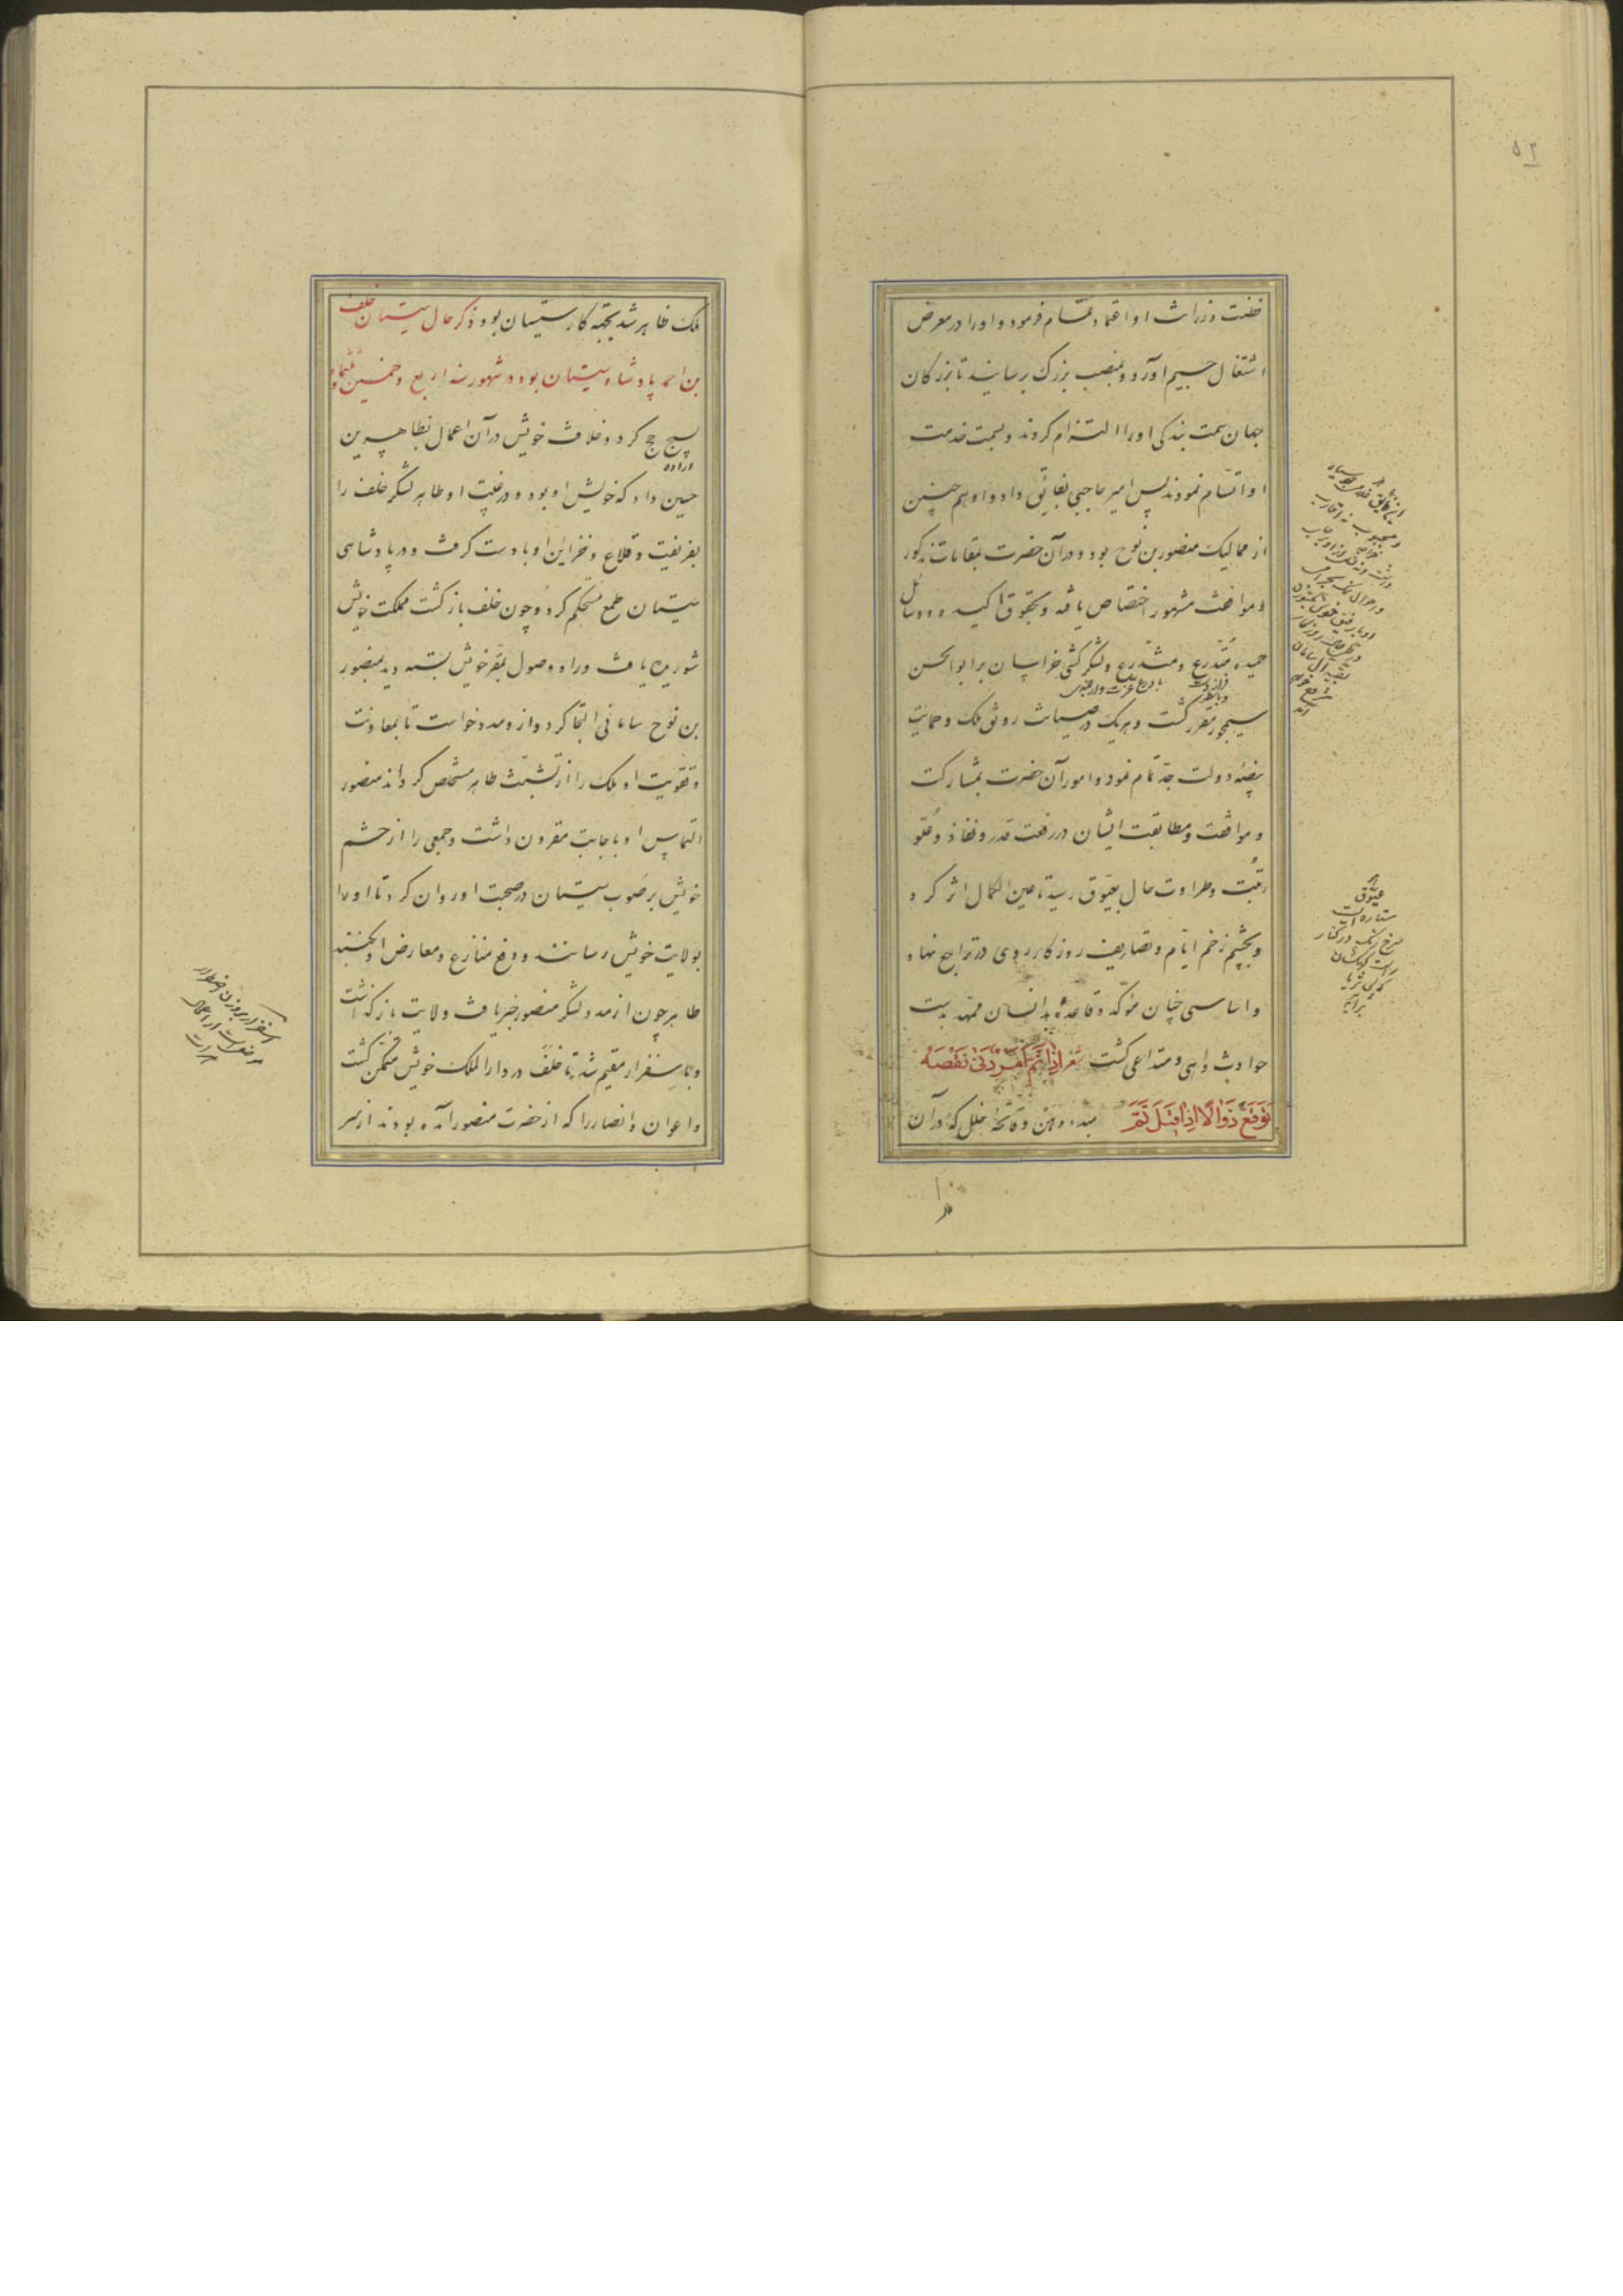 ۵۲
فطنت و زرانت او اعتماد تمام فرمود و او را در معرض
اشتغال جسیم آورد و بمنصب بزرگ برسانید تا بزرکان
جهان سمت بندکی او را التزام کردند و بسمت خدمت
او اتسام نمودند پس امیر حاجبی بفایق داد و او هم چنین
از ممالیک منصور بن نوح بود و در آن حضرت بمقامات مذکور
و مواقف مشهور اختصاص یافته و بحقوق اکیده و وسائل
حمیده متدرع و لشکر کشی خراسان بر ابو الحسن
سیمجور مقرر کشت و هر یک در صیانت رونق ملک و حمایت
بیضهٔ دولت جد تمام نمود و امور آن حضرت بمشارکت
و موافقت و مطابقت ایشان در رفعت قدر و نفاذ و علو
رتبت و طراوت حال بعیوق رسید تا عین الکمال اثر کرد
و بچشم زخم ایام و تصاریف روزکار روی در تراجع نهاد
و اساسی چنان مؤکد و قاعدهٔ بدانسان ممهد بدست
حوادث واهی و متداعی کشت شعر اذا تم امر دنی نقصه
توقع زوالا اذا قیل تم مبدء وهن و فاتحهٔ خلل که در آن
عیوق
ستاره ایست
سرخ رنک در کنار
راست کهکشان
ملک ظاهر شد بجهة کار سیستان بود ذکر حال سیستان خلف
بن احمد پادشاه سیستان بود در شهور سنه اربع و خمسین و ثلثمائه
بسیج حج کرد و خلافت خویش در آن اعمال بطاهر بن
اراده
حسین داد که خویش او بود و در غیبت او طاهر لشکر خلف را
بفریفت و قلاع و خزاین او بادست کرفت و در پادشاهی
سیستان طمع مستحکم کرد و چون خلف باز کشت مملکت خویش
شوریده یافت و راه وصول بمقر خویش بسته دید بمنصور
بن نوح سامانی التجا کرد و از و مدد خواست تا بمعاونت
و تقویت او ملک را از تشبث طاهر مستخلص کرداند منصور
التماس او باجابت مقرون داشت و جمعی را از حشم
خویش بر صوب سیستان در صحبت او روان کرد تا او را
بولایت خویش رسانند و دفع منازع و معارض او بکنند
طاهر چون از مدد لشکر منصور خبر یافت ولایت باز کذاشت
و باسفزار مقیم شد تا خلف در دار الملک خویش متمکن کشت
و اعوان و انصار را که از حضرت منصور آمده بودند از سر